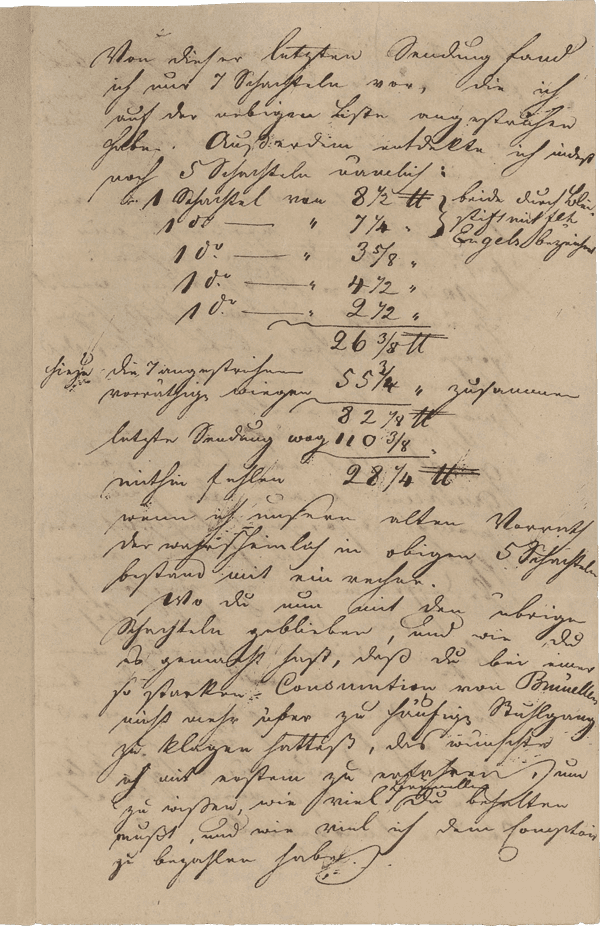 Von dieser letzten Sendung fand
ich nur 7 Schachteln vor, die ich
auf der obigen Liste angestrichen
habe. Außerdem entdekte ich indeß
noch 5 Schachteln nämlich:
1 Schachtel von 8 1/2 ℔ } beide durch Blei-
1 do — " 7 1/4 " } stift mit
Engels bezeichnet
1 do — " 3 5/8 "
1 do — " 4 1/2 "
1 do — " 2 1/2 "
26 3/8 ℔
hiezu die 7 angestrichenen
vorräthig wiegen 55 3/4 " zusammen
82 1/8 ℔
letzte Sendung wog 110 3/8 "
mithin fehlen 28 1/4 ℔
wenn ich unsern alten Vorrath
der wahrscheinlich in obigen 5 Schachteln
bestand mit ein rechne.
Wo du nun mit den übrigen
Schachteln geblieben, und wie du
es gemacht hast, daß du bei einer
so starken Consumtion von Brünellen
nicht mehr über zu häufige Stuhlgang
zu klagen hattest, das wünschte
ich mit erstem zu erfahren, um
zu wissen, wie viel Brünellen du behalten
mußt, und wie viel ich dem Comptoir
zu bezahlen habe.